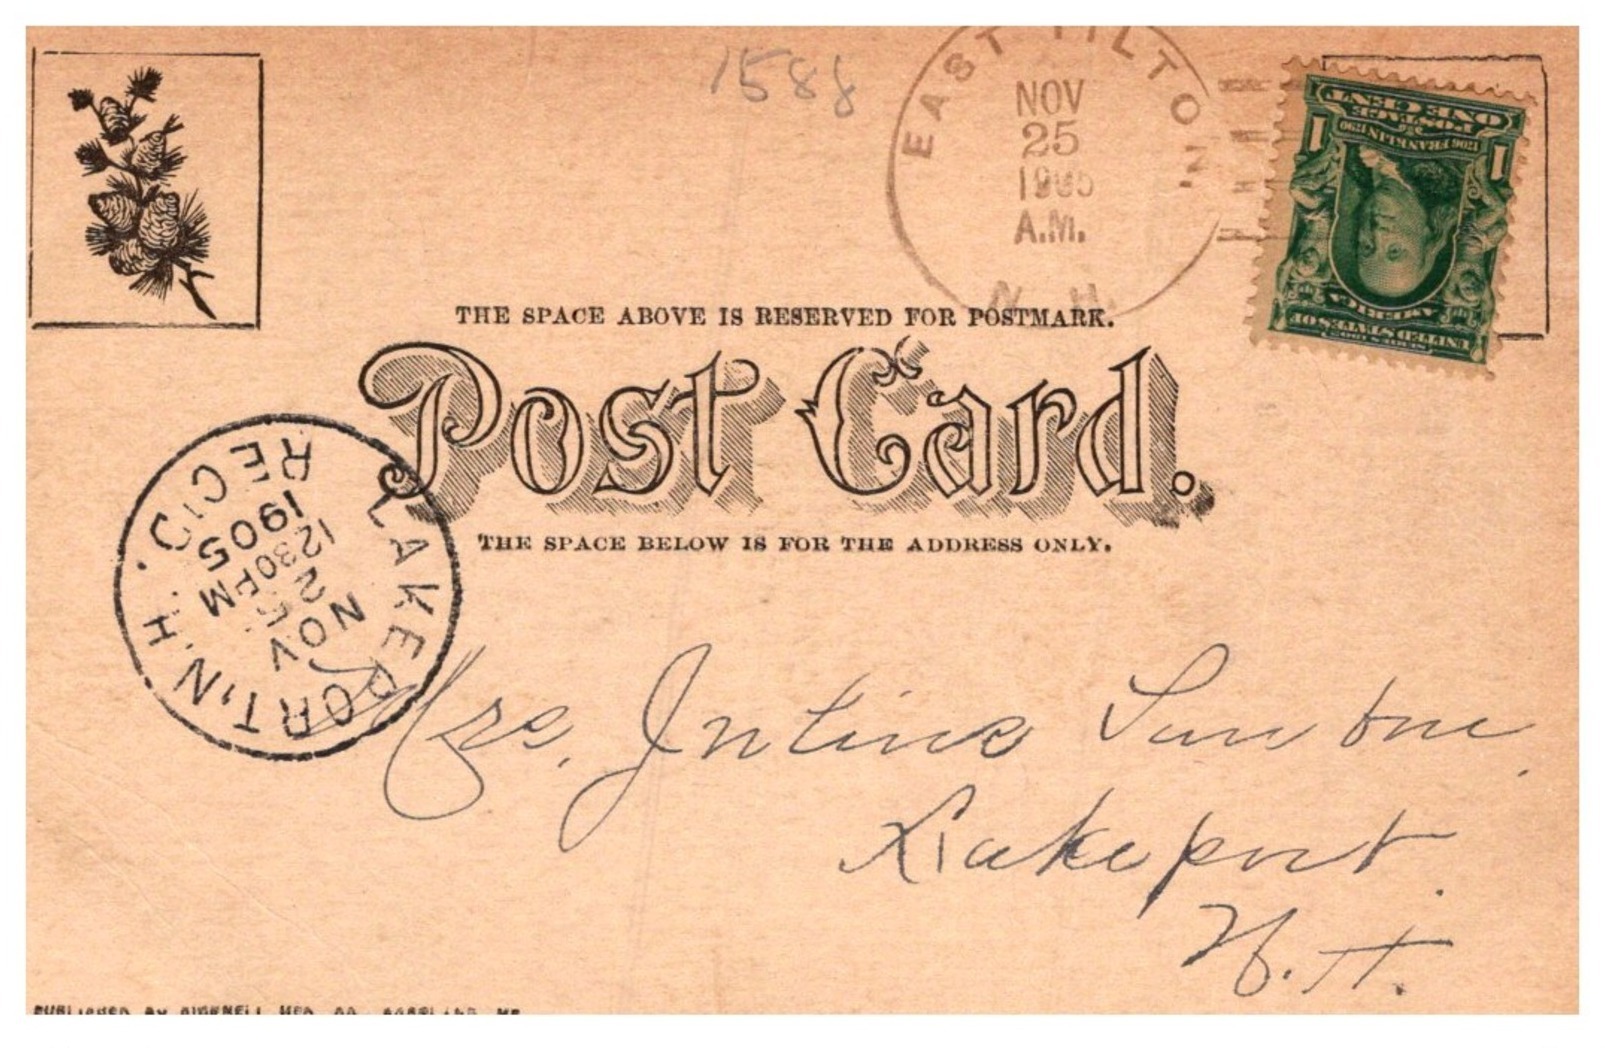 1588
EAST TILTON
NOV
25
1905
A.M.
N. H.
ONE CENT
POSTAGE
1706 FRANKLIN 1790
1 1
AMERICA
UNITED STATES OF
SERIES 1902
THE SPACE ABOVE IS RESERVED FOR POSTMARK.
Post Card.
THE SPACE BELOW IS FOR THE ADDRESS ONLY.
LAKEPORT, N.H.
NOV
25
1230PM
1905
REC'D.
Mrs.
Lakeport
N. H.
PUBLISHED BY BICKNELL MFG CO. PORTLAND ME